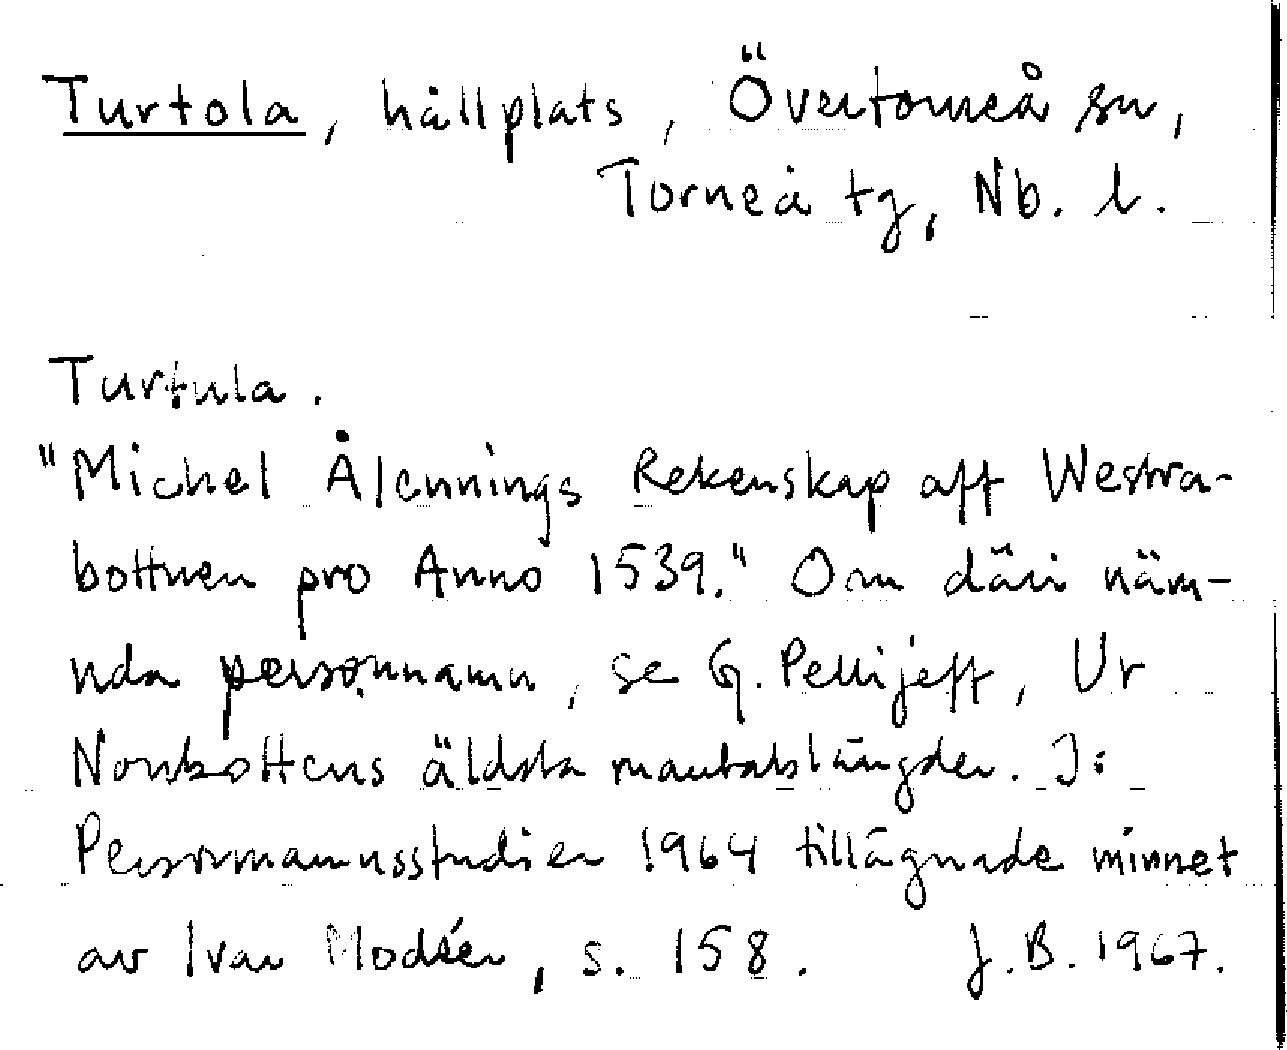 Turtola, hållplats, Övertorneå sn,
Torneå tg, Nb. l.
Turtula.
"Michel Ålennings Rekenskap aff Westra-
bottnen pro Anno 1539." Om däri näm-
nda personnamn, se G. Pellijeff, Ur
Norrbottens äldsta mantalslängder. I:
Personnamnsstudier 1964 tillägnade minnet
av Ivar Modéer, s. 158. J.B. 1967.